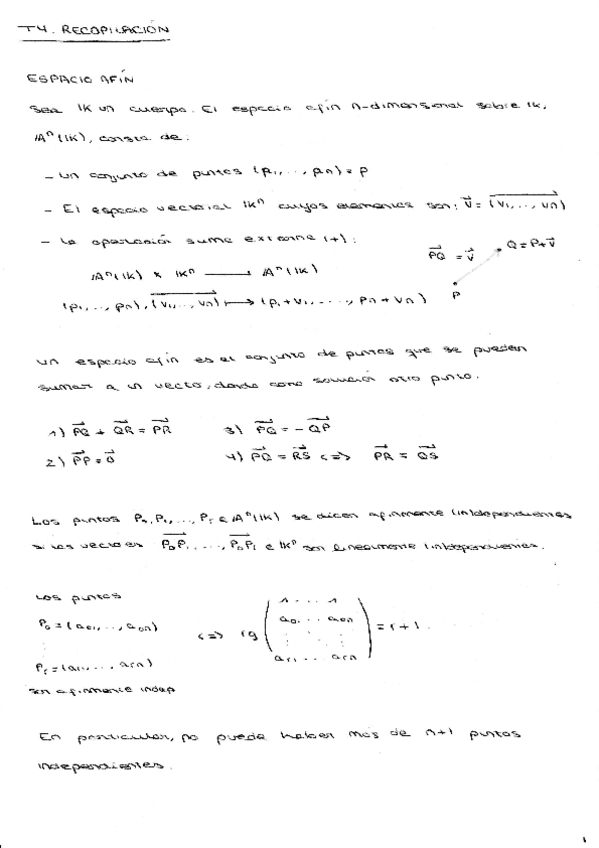 T4. RECOPILACIÓN
ESPACIO AFÍN
Sea 𝕂 un cuerpo. El espacio afín n-dimensional sobre 𝕂,
𝔸ⁿ(𝕂), consta de:
- Un conjunto de puntos (p₁, ..., pₙ) = p
- El espacio vectorial 𝕂ⁿ cuyos elementos son: v⃗ = (v₁, ..., vₙ)
- La operación suma externa (+):
PQ⃗ = v⃗ Q = P + v⃗
𝔸ⁿ(𝕂) x 𝕂ⁿ ⟶ 𝔸ⁿ(𝕂)
P
(p₁, ..., pₙ), (v₁, ..., vₙ) ⟼ (p₁ + v₁, ..., pₙ + vₙ)
Un espacio afín es el conjunto de puntos que se pueden
sumar a un vector, dando como solución otro punto.
1) PQ⃗ + QR⃗ = PR⃗ 3) PQ⃗ = -QP⃗
2) PP⃗ = 0⃗ 4) PQ⃗ = RS⃗ <=> PR⃗ = QS⃗
Los puntos P₀, P₁, ..., Pᵣ ∈ 𝔸ⁿ(𝕂) se dicen afínmente (in)dependientes
si los vectores P₀P₁, ..., P₀Pᵣ ∈ 𝕂ⁿ son linealmente (in)dependientes.
Los puntos
1 ... 1
P₀ = (a₀₁, ..., a₀ₙ) <=> rg a₀₁ ... a₀ₙ = r + 1
Pᵣ = (aᵣ₁, ..., aᵣₙ) aᵣ₁ ... aᵣₙ
son afínmente indep
En particular, no puede haber más de n+1 puntos
independientes.
1